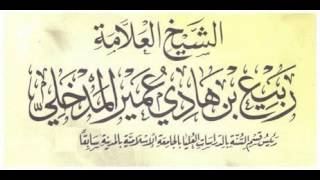 الشيخ العلامة
ربيع بن هادي عمير المدخلي
رئيس قسم السنة بالدراسات العليا بالجامعة الإسلامية بالمدينة سابقا